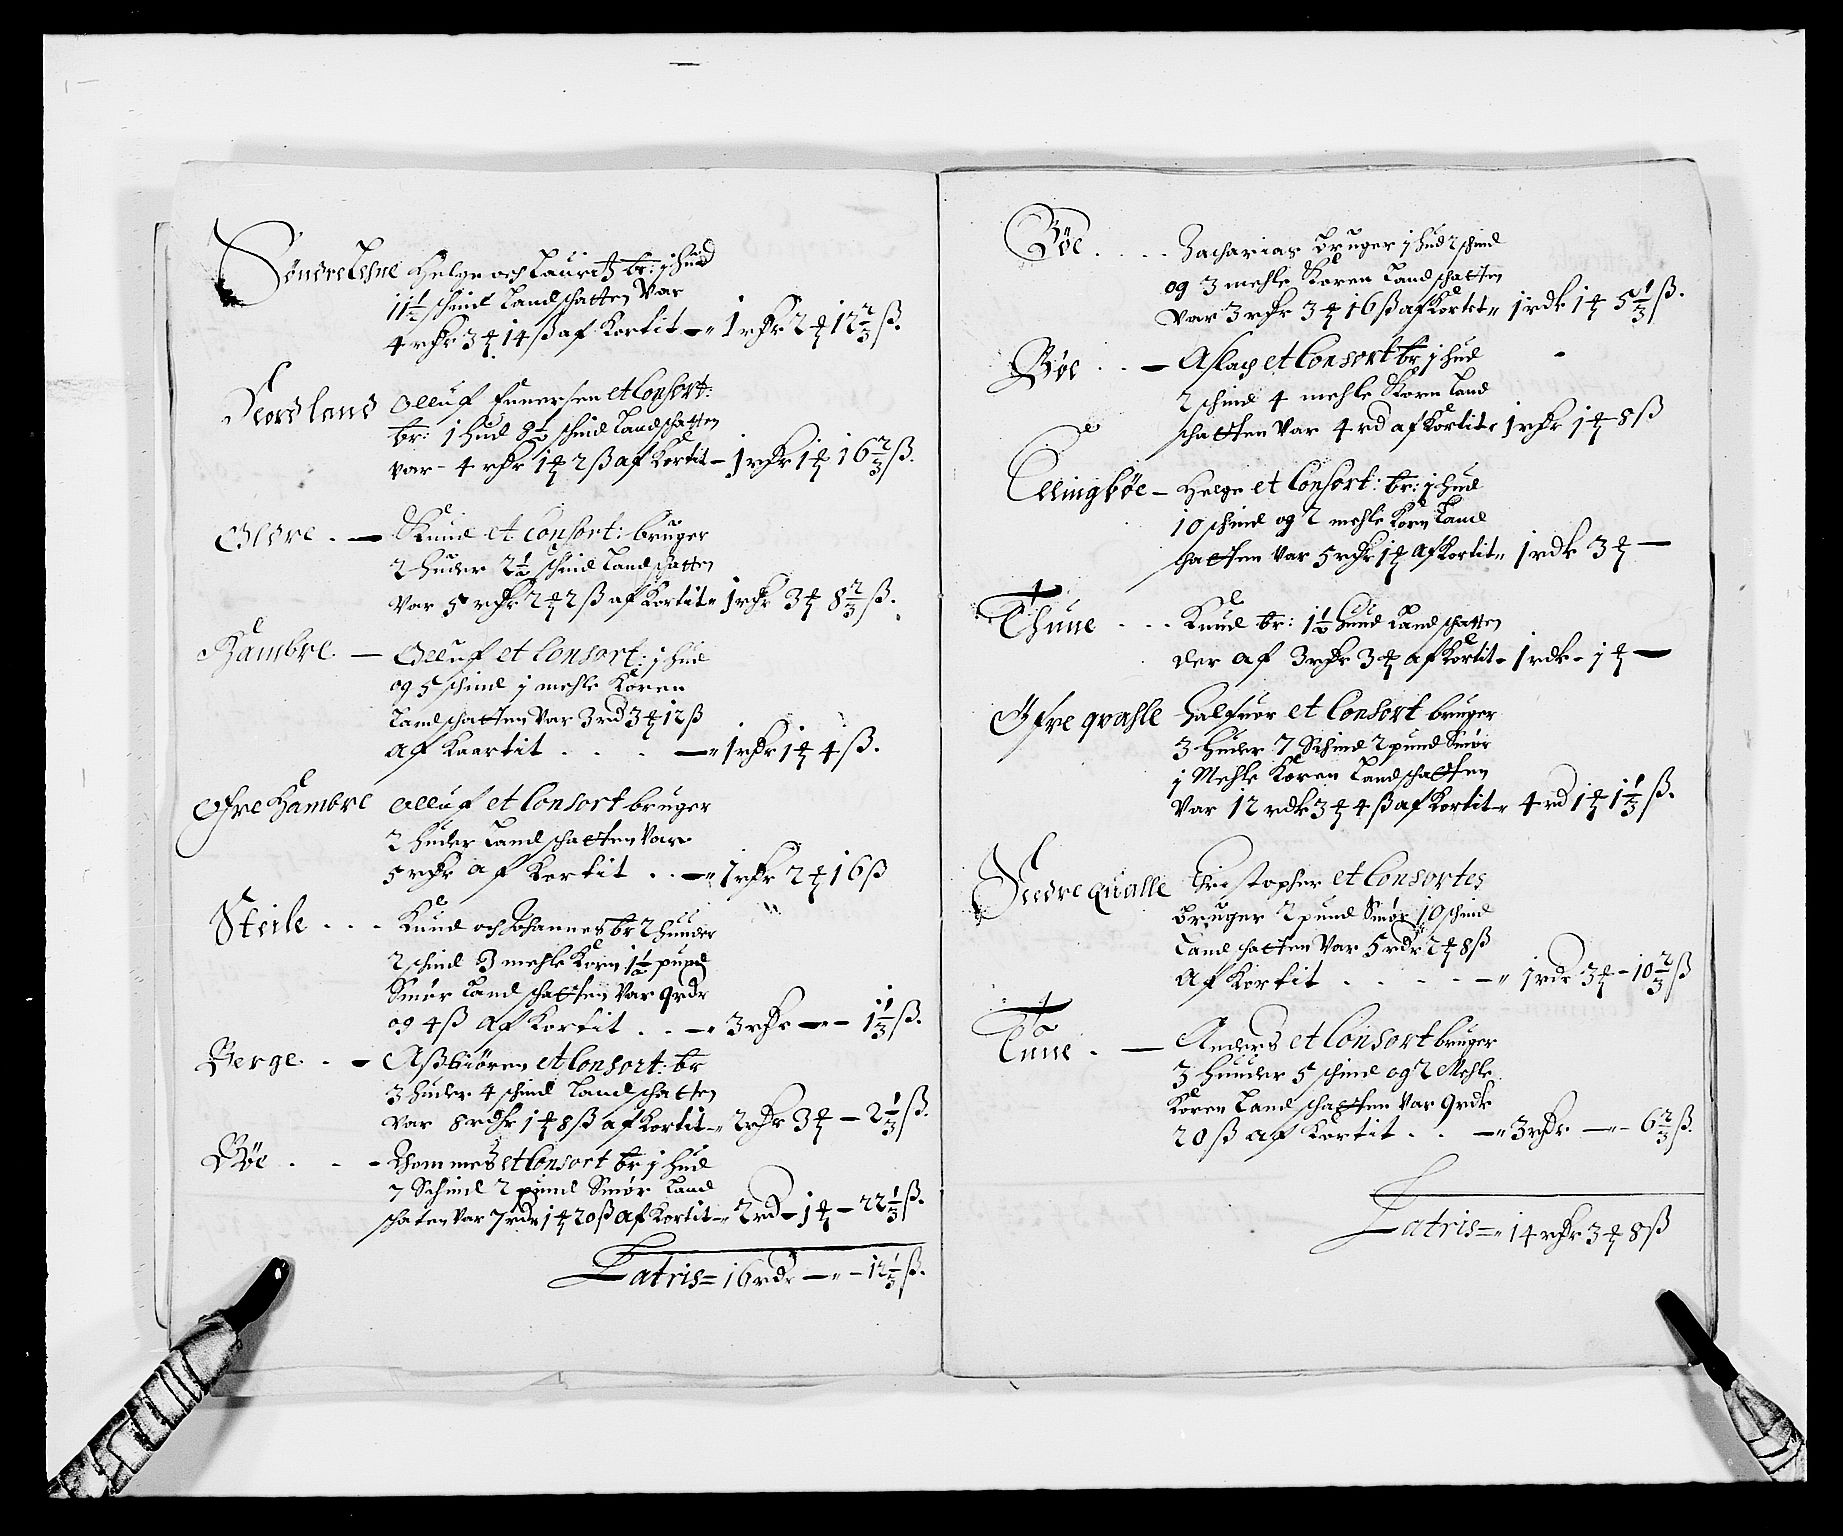 Søndre Lesne Helge och Lauritz br: j hud
11½ schind Landschatten Var
4 rdr 3 ꝶ 14 ß af Kortit — 1 rdr 2 ꝶ 12 2/3 ß.
Nordland Olluf Enersen et Consort:
br: 1 hud 9½ schind Landschatten
var - 4 rdr 1 ꝶ 2 ß af Kortit - 1 rdr 1 ꝶ 16 2/3 ß.
Oldre . — Knud et Consort: bruger
2 huder 2½ schind Landschatten
Var 5 rdr 2 ꝶ 2 ß af Kortit - 1 rdr 3 ꝶ 8 2/3 ß.
Hambre . — Olluf et Consort: j hud
og 5 schind j mehle Koren
Landschatten Var 3 rd 3 ꝶ 12 ß
af Kaartit . . . — 1 rdr 1 ꝶ 4 ß.
Øfre Hambre Olluf et Consort bruger
2 huder Landschatten Var
5 rdr af Kortit . . — 1 rdr 2 ꝶ 16 ß
Steile . . . Knud och Johannes br 2 huuder
2 schind 3 mehle Korn 1½ pund
Smør Landschatten Var 9 rdr
og 4 ß af Kortit . . — 3 rdr — - 1 1/3 ß.
Berge . . - Aßbiøren et Consort: br
3 huder 4 schind Landschatten
Var 8 rdr 1 ꝶ 8 ß af Kortit - 2 rdr 3 ꝶ - 2 1/3 ß.
Bøe . . - Thommes et Consort br j hud
7 Schind 2 pund Smør Land
schaten Var 7 rdr 1 ꝶ 20 ß af Kortit - 2 rd - 1 ꝶ - 22 1/3 ß.
Latris = 16 rdr — - 12 1/3 ß.
Bøe . . . . Zacharias Bruger j hud 2 schind
og 3 mehle Koren Landschatten
Var 3 rdr 3 ꝶ 16 ß af Kortet - 1 rdr 1 ꝶ 5 1/3 ß.
Bøe . . — Aslach et Consort br j hud
2 schind 4 mehle Korn Land
schatten Var 4 rd af Kortit - 1 rdr 1 ꝶ 8 ß
Ellingbøe - Helge et Consort: br: j hud
10 schind og 2 mehle Korn Land
schatten Var 5 rdr 1 ꝶ af Kortit - 1 rdr 3 ꝶ —
Thune . . . Knud br: 1½ huud Landschatten
der af 3 rdr 3 ꝶ af Kortit - 1 rdr - 1 ꝶ —
Øfre qvahle Halfuor et Consort bruger
3 huder 7 Schind 2 pund Smør
j Mehle Koren Landschatten
Var 12 rdr 3 ꝶ 4 ß af Kortit - 4 rd 1 ꝶ 1 1/3 ß.
Nedre Qualle Christopher et Consortes
Bruger 2 pund Smør 10 schind
Landschatten Var 5 rdr 2 ꝶ 8 ß
af Kortit . . . — 1 rdr 3 ꝶ - 10 2/3 ß
Tune . — Anders et Consort bruger
3 Huuder 5 schind og 2 Mehle
Koren Landschatten Var 9 rdr
20 ß af Kortit . . — 3 rdr — - 6 2/3 ß.
Latris = 14 rdr 3 ꝶ 8 ß